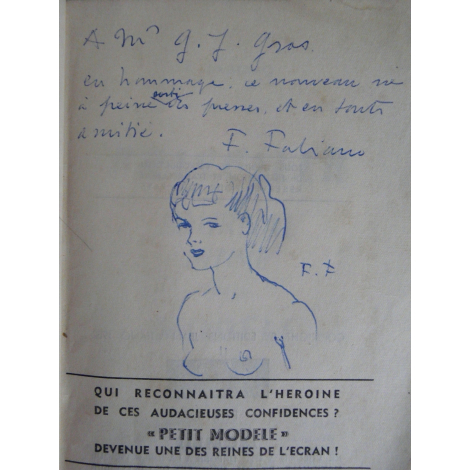 A Mr G. J. Gros.
en hommage, ce nouveau né
à peine sorti des presses, et en toute
amitié.
F. Fabiano
F. F
QUI RECONNAITRA L'HEROINE
DE CES AUDACIEUSES CONFIDENCES ?
« PETIT MODELE »
DEVENUE UNE DES REINES DE L'ECRAN !